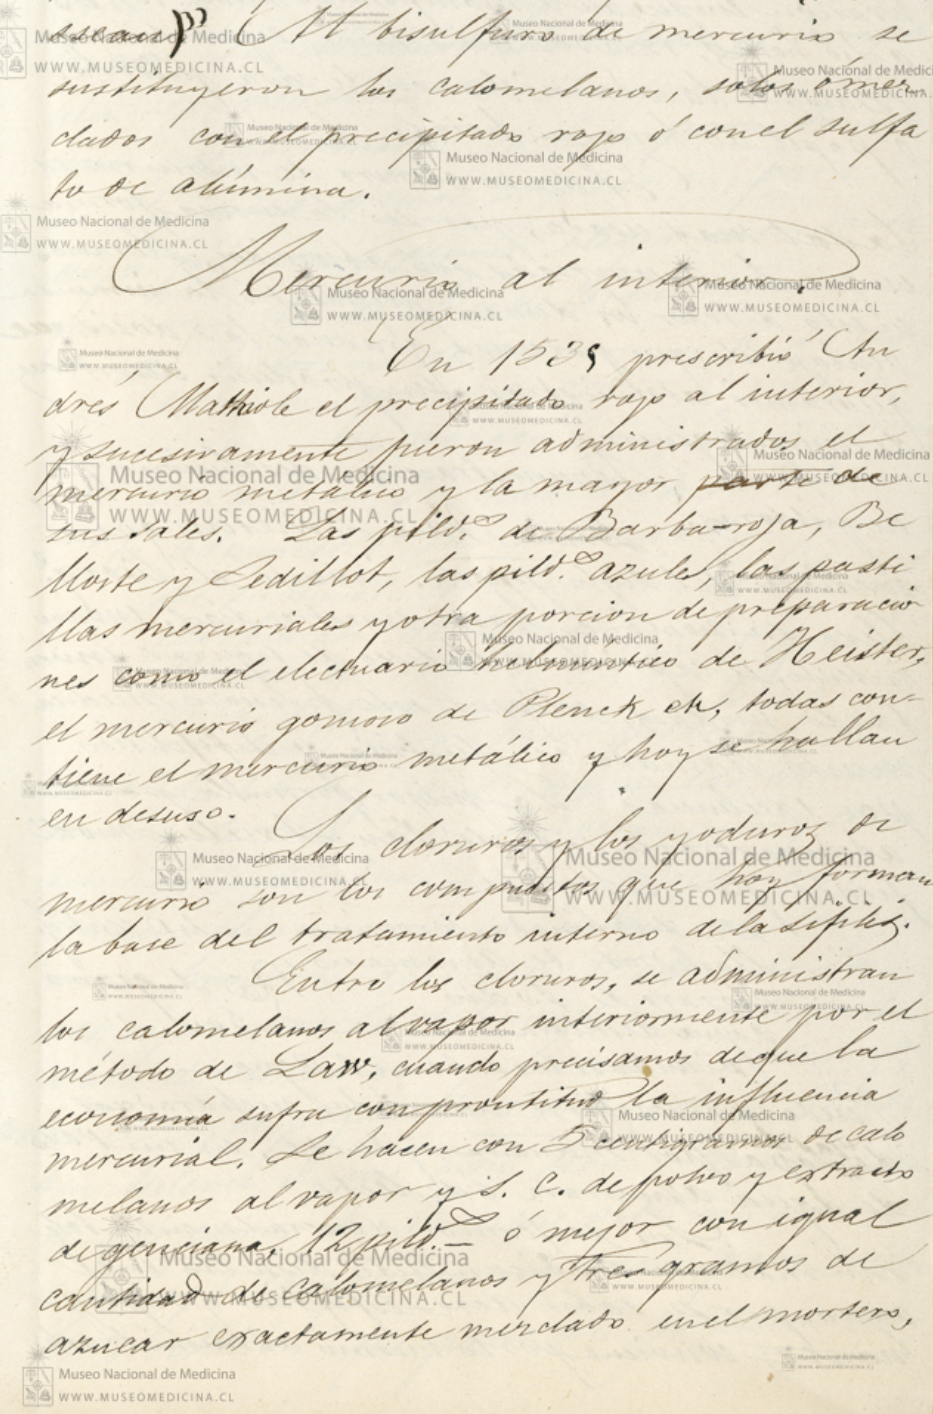 Al bisulfuro de mercurio se
sustituyeron los calomelanos, solos ó mez
clados con el precipitado rojo ó con el sulfa
to de alúmina.
Mercurio al interior.
En 1535 prescribió An
drés Mathiole el precipitado rojo al interior,
y sucesivamente fueron administrados el
mercurio metálico y la mayor parte de
sus sales. Las píld.s de Barba-roja, Be
lloste y Sedillot, las pild.s azules, las pasti
llas mercuriales y otra porcion de preparacio
nes como el electuario de Heister,
el mercurio gomoso de Plenck etc, todas con-
tiene el mercurio metálico y hoy se hallan
en desuso.
Los cloruros y los yoduros de
mercurio son los compuestos que hoy forman
la base del tratamiento interno de la sífilis.
Entre los cloruros, se administran
los calomelanos al vapor interiormente por el
método de Law, cuando precisamos de que la
economía sufra con prontitud la influencia
mercurial. Se hacen con 5 centigramos de calo
melanos al vapor y S. C. de polvo y extracto
de genciana, 12 pild.s ó mejor con igual
cantidad de calomelanos y tres gramos de
azucar exactamente mezclado en el mortero,
Museo Nacional de Medicina
WWW.MUSEOMEDICINA.CL